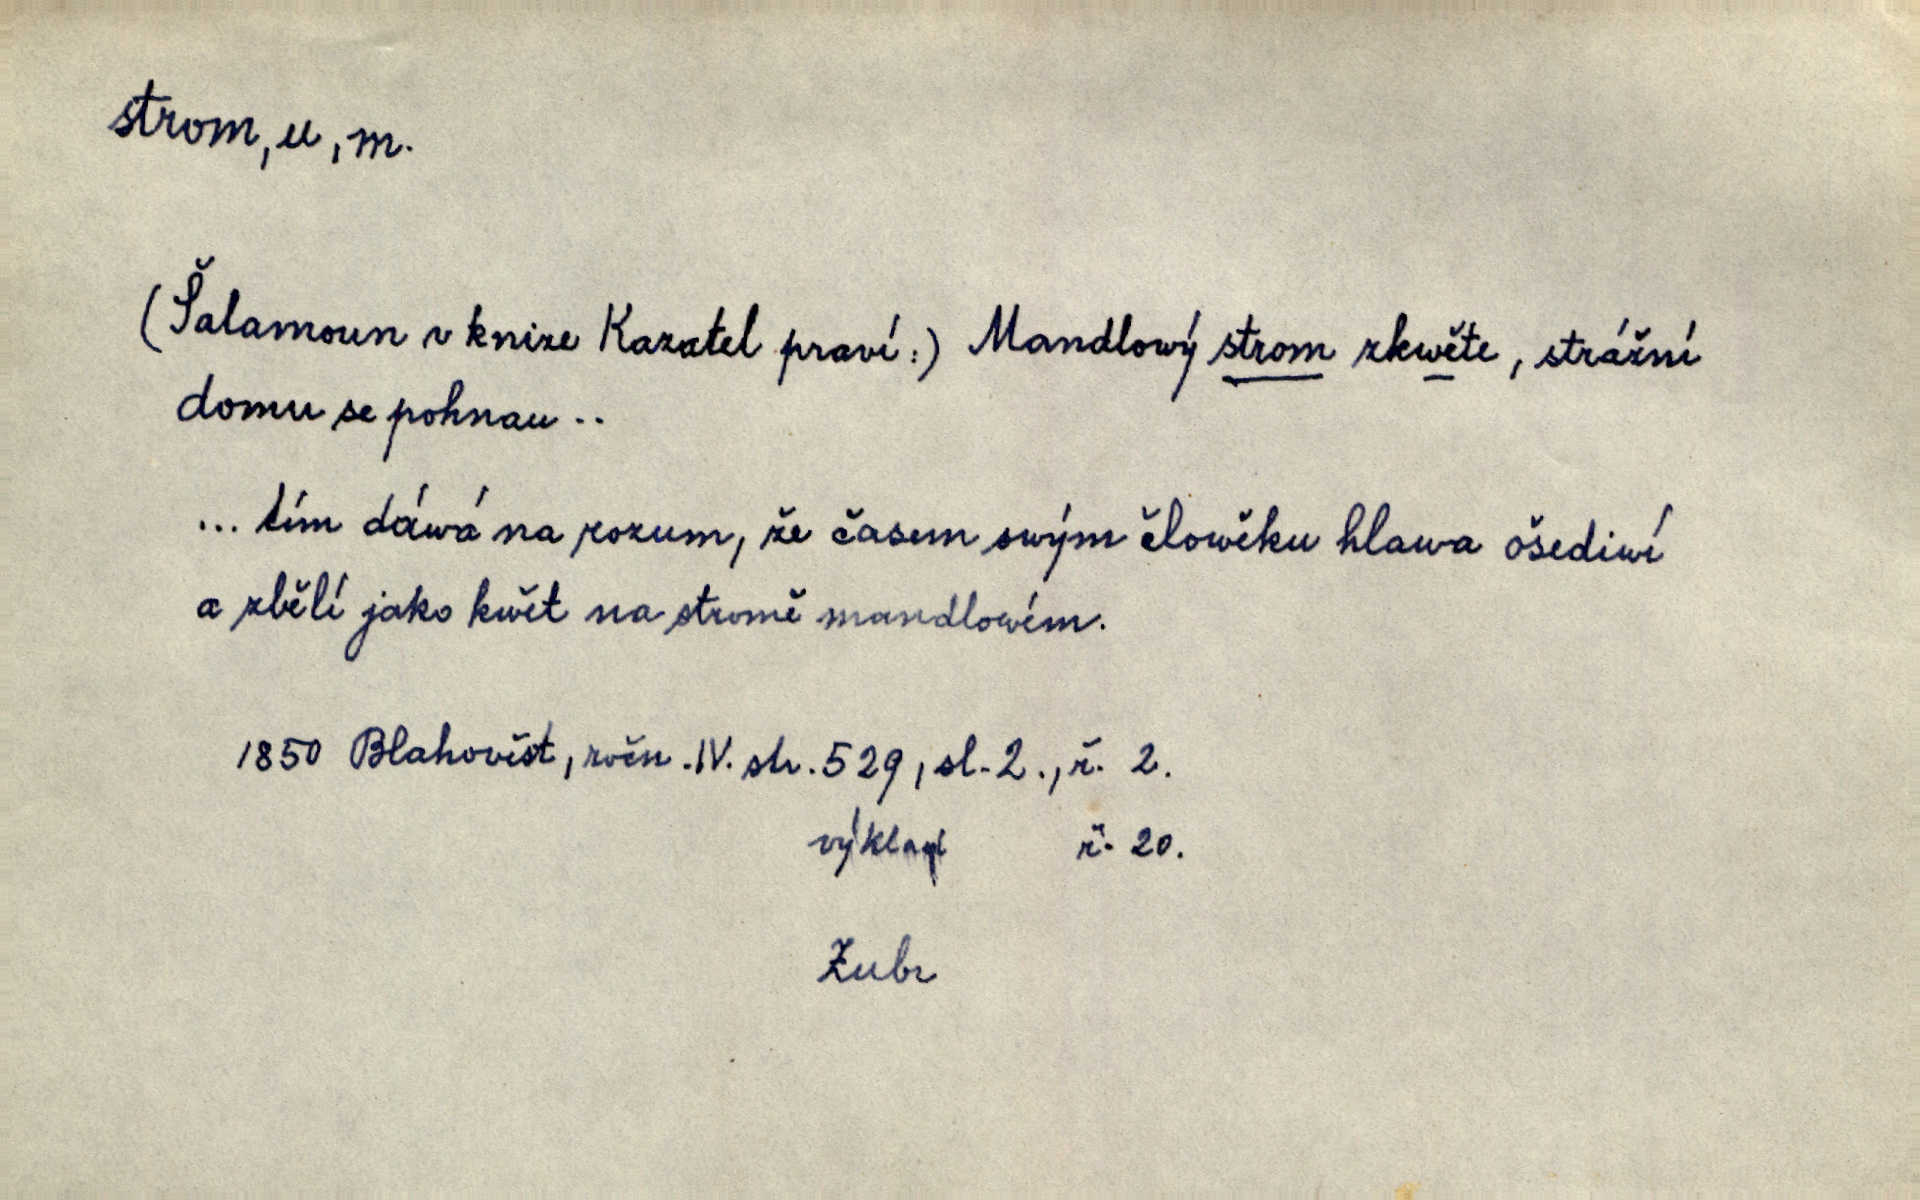 strom, u, m.
(Šalamoun v knize Kazatel praví:) Mandlowý strom zkwěte, strážní
domu se pohnau..
... tím dáwá na rozum, že časem swým člowěku hlawa ošediwí
a zbělí jako kwět na stromě mandlowém.
1850 Blahověst, ročn. IV. str. 529, sl. 2., ř. 2.
výklad ř. 20.
Zubr